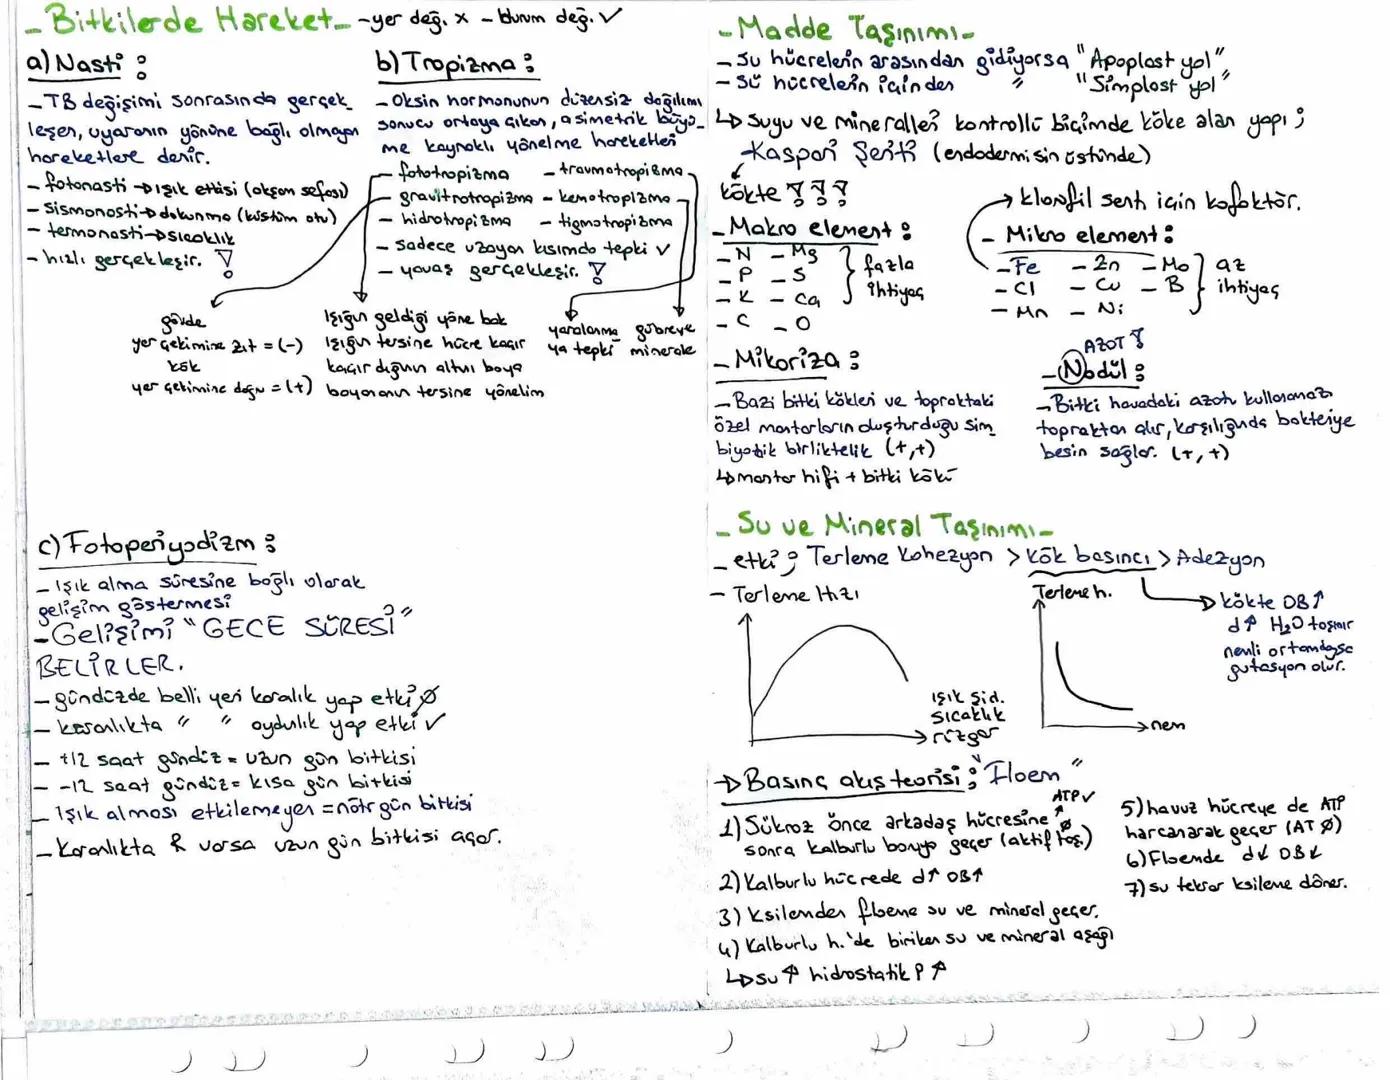 - Bitkilerde Hareket - -yer değ. x - durum değ. ✓
a) Nasti :
- TB değişimi sonrasında gerçek_
leşen, uyaranın yönüne bağlı olmayan
hareketlere denir.
- fotonasti → ışık etkisi (akşam sefası)
- Sismonasti → dokunma (küstüm otu)
- termonasti → sıcaklık
- hızlı gerçekleşir. !
b) Tropizma :
- Oksin hormonunun düzensiz dağılımı
sonucu ortaya çıkan, asimetrik büyü_
me kaynaklı yönelme hareketleri
- fototropizma - travmatropizma
- gravitrotropizma - kemotropizma
- hidrotropizma - tigmotropizma
- sadece uzayan kısımda tepki ✓
- yavaş gerçekleşir. !
gövde
yer çekimine zıt = (-)
kök
yer çekimine doğru = (+)
Işığın geldiği yöne bak
Işığın tersine hücre kaçır
kaçırdığın altını boya
boyananın tersine yönelim
yaralanma
ya tepki
gübreye
minerale
c) Fotoperiyodizm :
- Işık alma süresine bağlı olarak
gelişim göstermesi
- Gelişimi "GECE SÜRESİ"
BELİRLER.
- gündüzde belli yeri karalık yap etki Ø
- karanlıkta " " aydınlık yap etki ✓
- +12 saat gündüz = uzun gün bitkisi
- -12 saat gündüz = kısa gün bitkisi
- Işık alması etkilemeyen = nötr gün bitkisi
- Karanlıkta R varsa uzun gün bitkisi açar.
- Madde Taşınımı -
- Su hücrelerin arasından gidiyorsa "Apoplast yol"
- Su hücrelerin içinden " "Simplast yol"
↳ suyu ve mineralleri kontrollü biçimde köke alan yapı ;
Kaspari Şeriti (endodermisin üstünde)
kökte ! ! !
- Makro element :
- N - Mg
- P - S
- K - Ca
- C - O
fazla
ihtiyaç
→ klorofil sent için kofaktör.
- Mikro element :
- Fe - Zn - Mo
- Cl - Cu - B
- Mn - Ni
az
ihtiyaç
- Mikoriza :
- Bazi bitki kökleri ve topraktaki
özel mantarların oluşturduğu sim_
biyotik birliktelik (+,+)
↳ mantar hifi + bitki kökü
AZOT !
- Nodül :
- Bitki havadaki azotu kullanamaz
topraktan alır, karşılığında bakteriye
besin sağlar. (+,+)
- Su ve Mineral Taşınımı -
- etki ; Terleme Kohezyon > Kök basıncı > Adezyon
- Terleme Hızı
ışık şid.
sıcaklık
rüzgar
Terleme h.
nem
→ kökte OB↑
d↑ H₂O taşınır
nemli ortamdaysa
gutasyon olur.
→ Basınç akış teorisi : "Floem"
1) Sükroz önce arkadaş hücresine Ø ATP ✓
sonra kalburlu boruya geçer (aktif taş.)
2) Kalburlu hücrede d↑ OB↑
3) Ksilemden floeme su ve mineral geçer.
4) Kalburlu h.'de biriken su ve mineral aşağı
↳ su ↑ hidrostatik P ↑
5) havuz hücreye de ATP
harcanarak geçer (AT Ø)
6) Floemde d↓ OB↓
7) su tekrar ksileme döner.